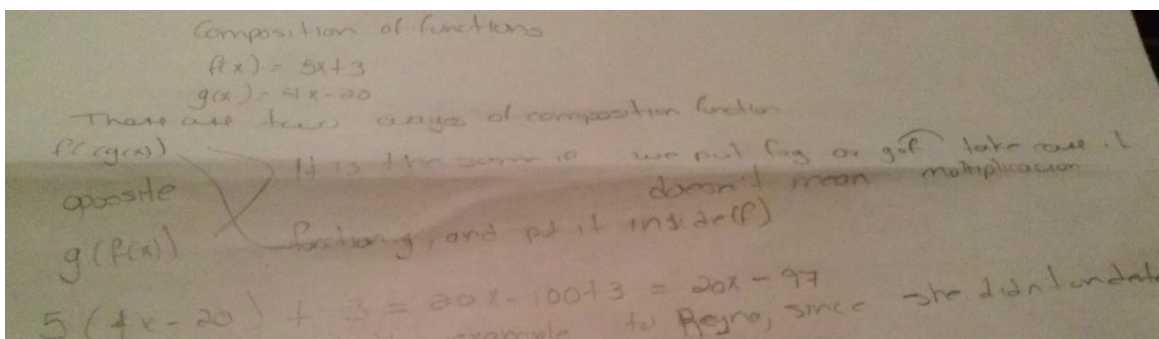 Composition of functions
f(x) = 5x+3
g(x) = 4x-20
There are two ways of composition function
f(g(x)) It is the same if we put fog or gof take care it
opposite doesn't mean multiplicacion
g(f(x)) function g, and put it inside(f)
5(4x-20) + 3 = 20x-100+3 = 20x-97
example to Reyna, since she didn't